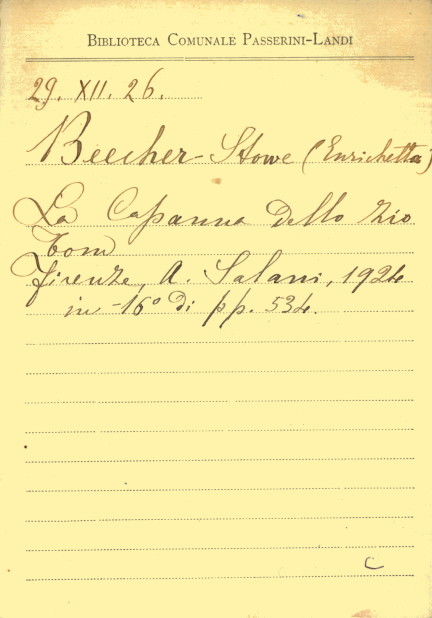 BIBLIOTECA COMUNALE PASSERINI-LANDI
29. XII. 26.
Beecher-Stowe (Enrichetta)
La Capanna dello zio
Tom
Firenze, A. Salani, 1924
in-16° di pp. 534.
C